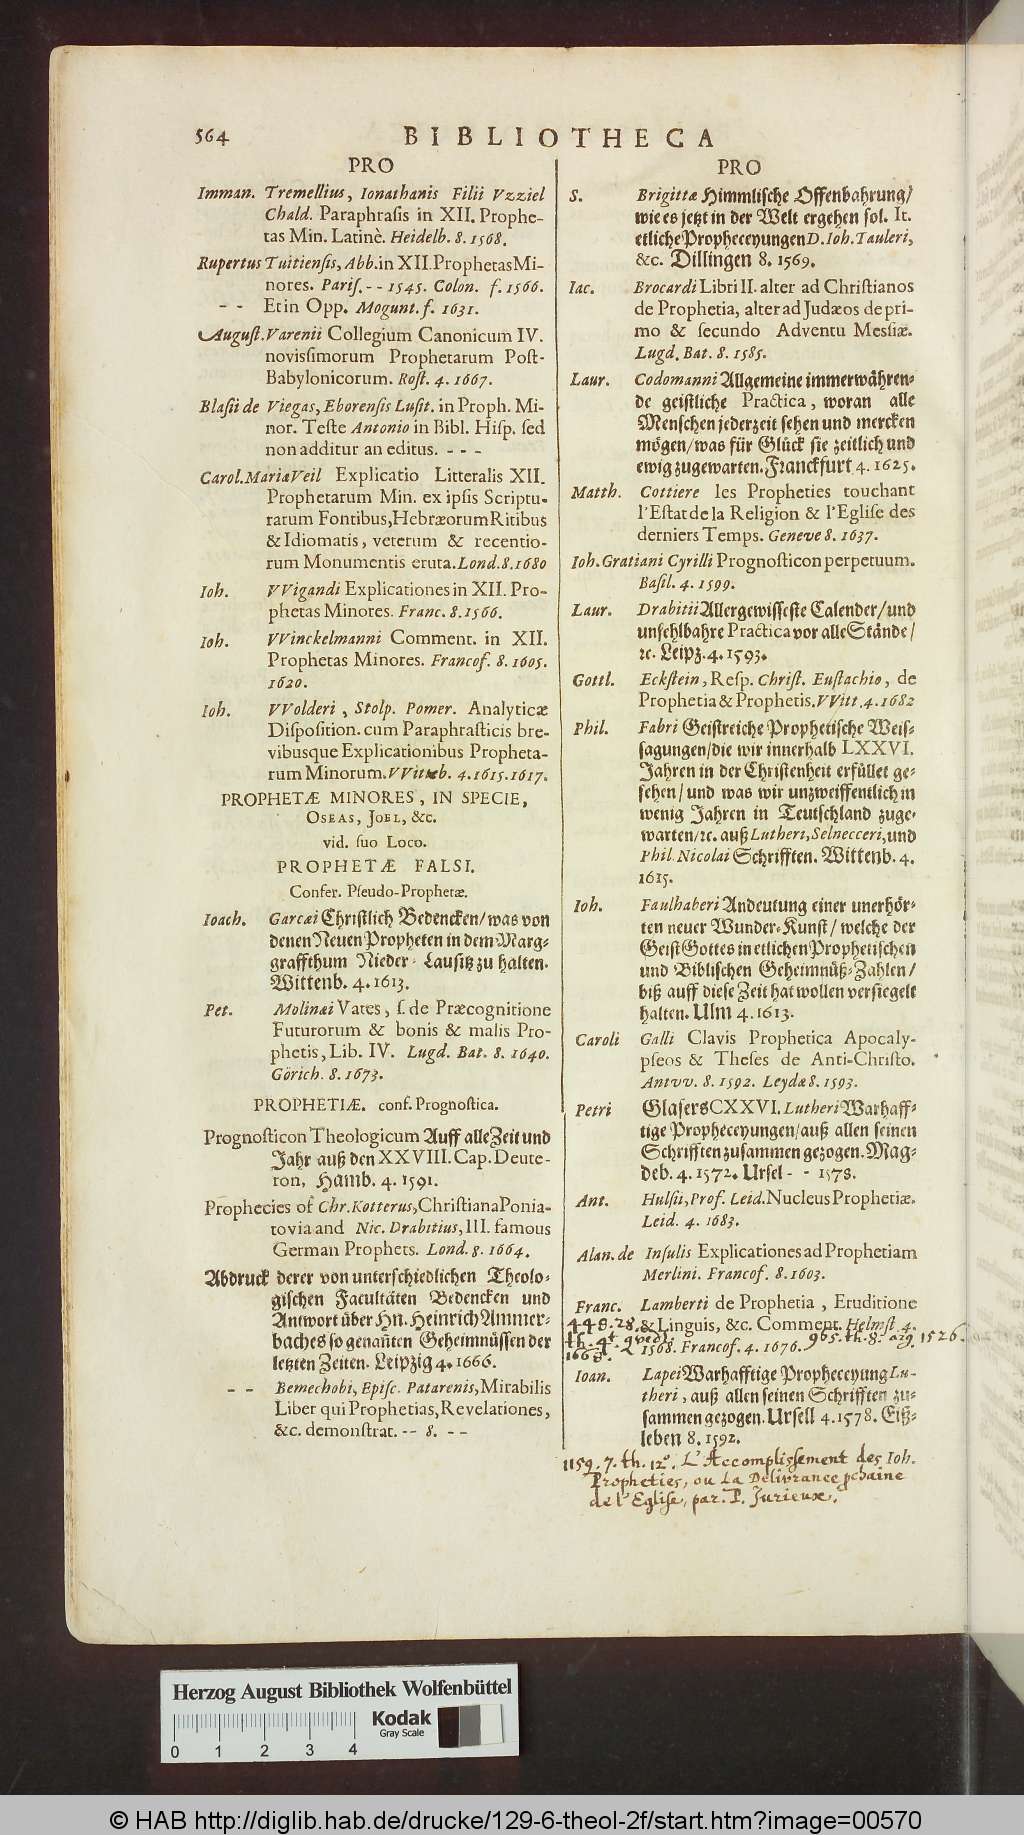 564 BIBLIOTHECA
PRO
Imman. Tremellius, Ionathanis Filii Vzziel
Chald. Paraphrasis in XII. Prophe-
tas Min. Latinè. Heidelb. 8. 1568.
Rupertus Tuitiensis, Abb. in XII. Prophetas Mi-
nores. Paris. - - 1545. Colon. f. 1566.
- - Et in Opp. Mogunt. f. 1631.
August. Varenii Collegium Canonicum IV.
novissimorum Prophetarum Post-
Babylonicorum. Rost. 4. 1667.
Blasii de Viegas, Eborensis Lusit. in Proph. Mi-
nor. Teste Antonio in Bibl. Hisp. sed
non additur an editus. - - -
Carol. Maria Veil Explicatio Litteralis XII.
Prophetarum Min. ex ipsis Scriptu-
rarum Fontibus, Hebræorum Ritibus
& Idiomatis, veterum & recentio-
rum Monumentis eruta. Lond. 8. 1680
Ioh. VVigandi Explicationes in XII. Pro-
phetas Minores. Franc. 8. 1566.
Ioh. VVinckelmanni Comment. in XII.
Prophetas Minores. Francof. 8. 1605.
1620.
Ioh. VVolderi, Stolp. Pomer. Analyticæ
Disposition. cum Paraphrasticis bre-
vibusque Explicationibus Propheta-
rum Minorum. VVitteb. 4. 1615. 1617.
PROPHETÆ MINORES, IN SPECIE,
OSEAS, JOEL, &c.
vid. suo Loco.
PROPHETÆ FALSI.
Confer. Pseudo-Prophetæ.
Ioach. Garcæi Christlich Bedencken/ was von
denen Neuen Propheten in dem Marg-
graffthum Nieder-Lausitz zu halten.
Wittenb. 4. 1613.
Pet. Molinæi Vates, s. de Præcognitione
Futurorum & bonis & malis Pro-
phetis, Lib. IV. Lugd. Bat. 8. 1640.
Görich. 8. 1673.
PROPHETIÆ. conf. Prognostica.
Prognosticon Theologicum Auff alle Zeit und
Jahr auß den XXVIII. Cap. Deute-
ron, Hamb. 4. 1591.
Prophecies of Chr. Kotterus, Christiana Ponia-
tovia and Nic. Drabitius, III. famous
German Prophets. Lond. 8. 1664.
Abdruck derer von unterschiedlichen Theolo-
gischen Facultäten Bedencken und
Antwort über Hn. Heinrich Ammer-
baches so genañten Geheimnüssen der
letzten Zeiten. Leipzig 4. 1666.
- - Bemechobi, Episc. Patarenis, Mirabilis
Liber qui Prophetias, Revelationes,
&c. demonstrat. - - 8. - -
PRO
S. Brigittæ Himmlische Offenbahrung/
wie es jetzt in der Welt ergehen sol. It.
etliche Propheceyungen D. Ioh. Tauleri,
&c. Dillingen 8. 1569.
Iac. Brocardi Libri II. alter ad Christianos
de Prophetia, alter ad Judæos de pri-
mo & secundo Adventu Messiæ.
Lugd. Bat. 8. 1585.
Laur. Codomanni Allgemeine immerwähren-
de geistliche Practica, woran alle
Menschen jederzeit sehen und mercken
mögen/ was für Glück sie zeitlich und
ewig zugewarten. Franckfurt 4. 1625.
Matth. Cottiere les Propheties touchant
l'Estat de la Religion & l'Eglise des
derniers Temps. Geneve 8. 1637.
Ioh. Gratiani Cyrilli Prognosticon perpetuum.
Basil. 4. 1599.
Laur. Drabitii Allergewisseste Calender/ und
unfehlbahre Practica vor alle Stände/
ꝛc. Leipz. 4. 1593.
Gottl. Eckstein, Resp. Christ. Eustachio, de
Prophetia & Prophetis. VVitt. 4. 1682
Phil. Fabri Geistreiche Prophetische Weis-
sagungen/ die wir innerhalb LXXVI.
Jahren in der Christenheit erfüllet ge-
sehen/ und was wir unzweiffentlich in
wenig Jahren in Teutschland zuge-
warten/ ꝛc. auß Lutheri, Selnecceri, und
Phil. Nicolai Schrifften. Wittenb. 4.
1615.
Ioh. Faulhaberi Andeutung einer unerhör-
ten neuer Wunder-Kunst/ welche der
Geist Gottes in etlichen Prophetischen
und Biblischen Geheimnüß-Zahlen/
biß auff diese Zeit hat wollen versiegelt
halten. Ulm 4. 1613.
Caroli Galli Clavis Prophetica Apocaly-
pseos & Theses de Anti-Christo.
Antvv. 8. 1592. Leydæ 8. 1593.
Petri Glasers CXXVI. Lutheri Warhaff-
tige Propheceyungen/ auß allen seinen
Schrifften zusammen gezogen. Mag-
deb. 4. 1572. Ursel - - 1578.
Ant. Hulsii, Prof. Leid. Nucleus Prophetiæ.
Leid. 4. 1683.
Alan. de Insulis Explicationes ad Prophetiam
Merlini. Francof. 8. 1603.
Franc. Lamberti de Prophetia, Eruditione
448. 28. & Linguis, &c. Comment. Helmst. 4.
th. 4t 1568. Francof. 4. 1676. 965. th. 8. 1526.
1668.
Ioan. Lapei Warhafftige Propheceyung Lu-
theri, auß allen seinen Schrifften zu-
sammen gezogen. Ursell 4. 1578. Eiß-
leben 8. 1592.
1159. 7. th. 12º. L'Accomplissement des
Propheties, ou La Delivrance pchaine
de l'Eglise, par. P. Jurieux.
Herzog August Bibliothek Wolfenbüttel
Kodak
Gray Scale
0 1 2 3 4
© HAB http://diglib.hab.de/drucke/129-6-theol-2f/start.htm?image=00570